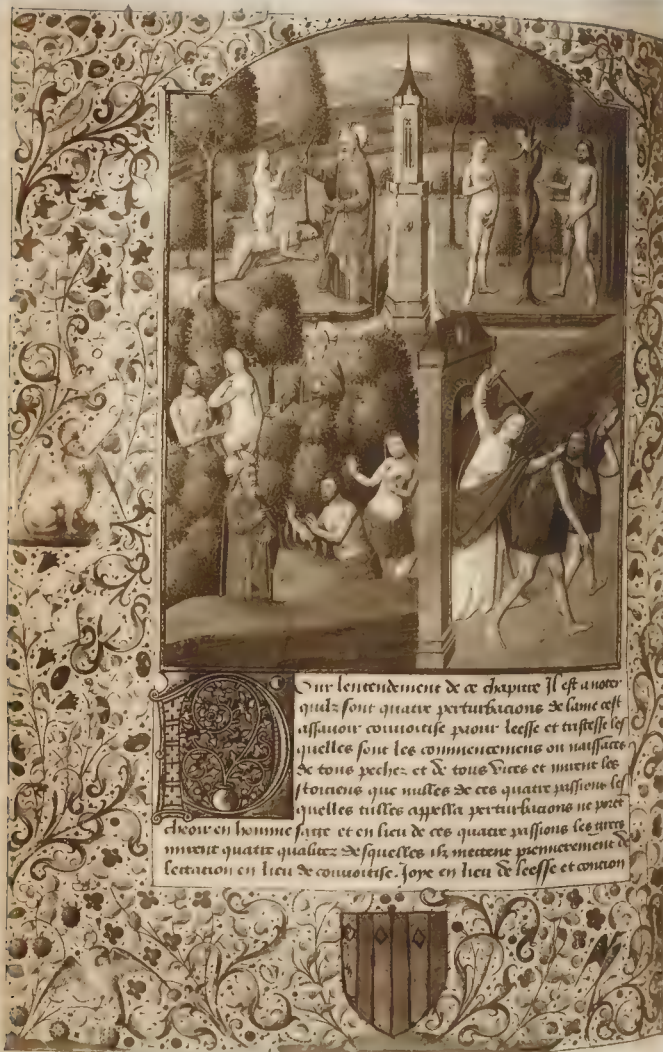 Sur lentendement de ce chapitre Il est a noter
quilz sont quatre perturbacions de lame cest
assauoir couuoitise paour leesse et tristesse les
quelles sont les commencemens ou naissāces
de tous pechez et de tous vices et mirent les
stoiciens que nulles de ces quatre passions les
quelles tulles appella perturbacions ne poet
cheoir en homme sage et en lieu de ces quatre passions les
mirent quatre qualitez desquelles ilz mettent premierement de
lectation en lieu de couuoitise. Joye en lieu de leesse et